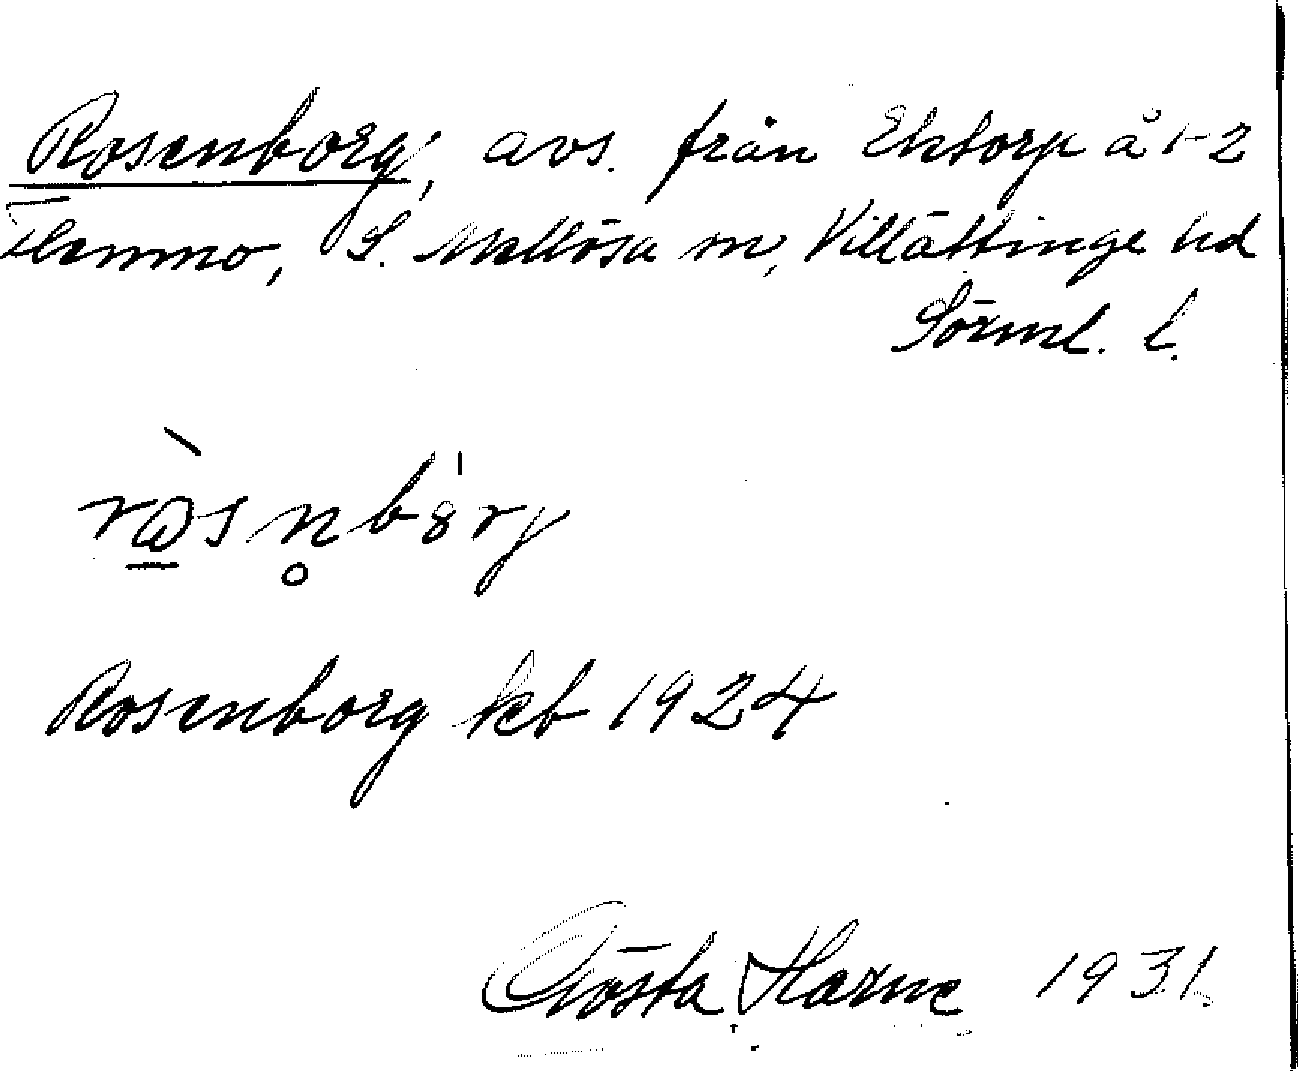 Rosenborg, avs. från Ektorp å 1-2
Flemmo, S. Mellösa sn, Villåttinge hd
Sörml. l.
Rosenborg kb 1924
Gösta Harne 1931